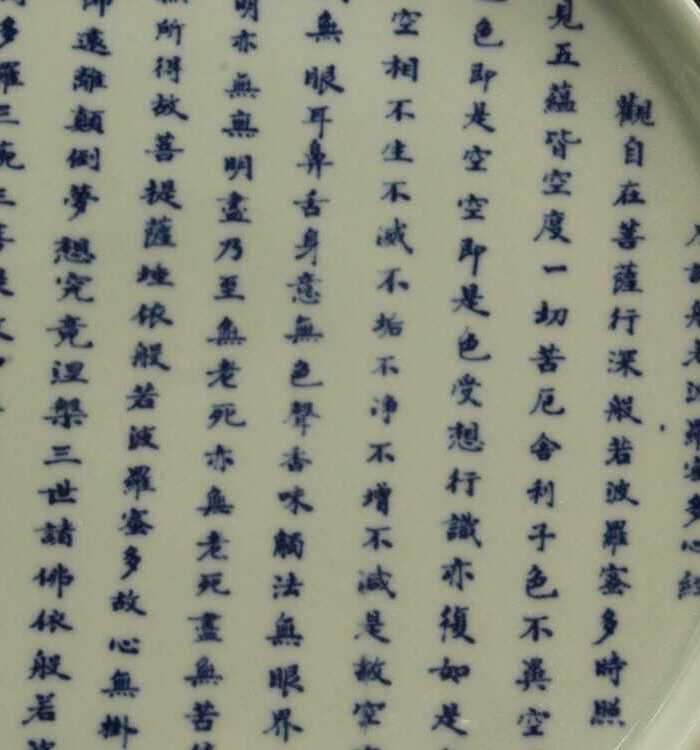 般若波羅蜜多心經
觀自在菩薩行深般若波羅蜜多時照
見五蘊皆空度一切苦厄舍利子色不異空
色即是空空即是色受想行識亦復如是
空相不生不滅不垢不淨不增不減是故空
無眼耳鼻舌身意無色聲香味觸法無眼界
明亦無無明盡乃至無老死亦無老死盡無苦
所得故菩提薩埵依般若波羅蜜多故心無掛
遠離顛倒夢想究竟涅槃三世諸佛依般若
多羅三藐三菩